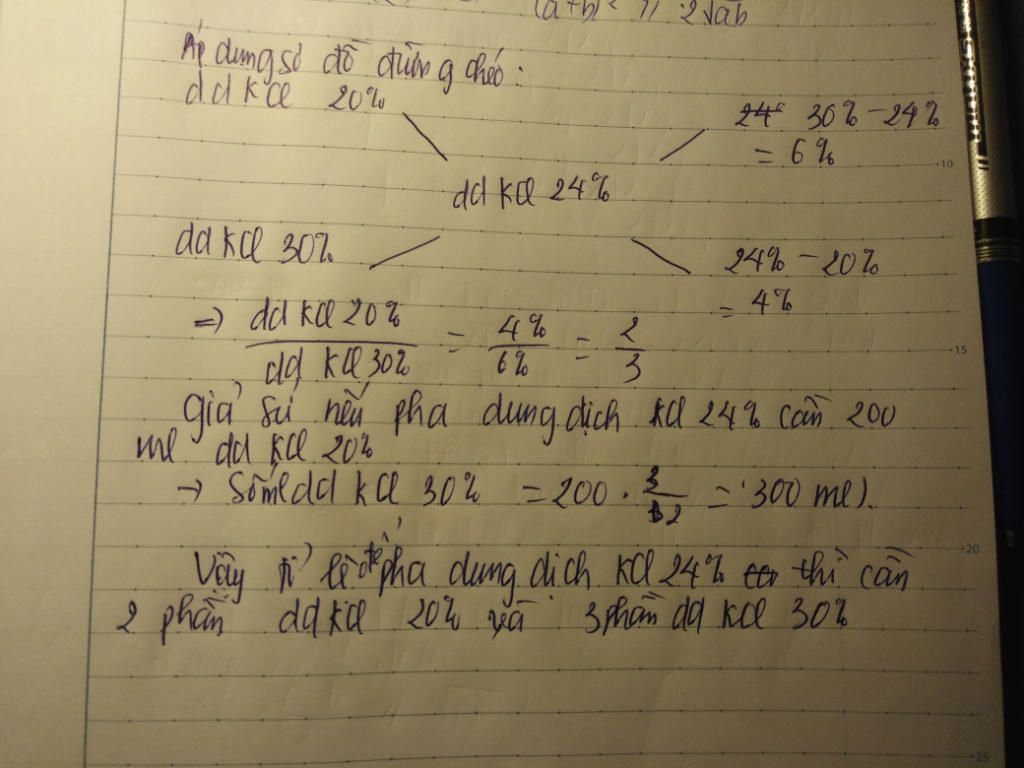 (a+b)² ≥ 2√ab
Áp dụng sơ đồ đường chéo:
dd KCl 20%
24% 30% - 24%
= 6%
dd KCl 24%
dd KCl 30%
24% - 20%
= 4%
=> dd KCl 20% / dd KCl 30% = 4% / 6% = 2 / 3
Giả sử nếu pha dung dịch KCl 24% cần 200
ml dd KCl 20%
-> Số ml dd KCl 30% = 200 . 3 / 2 = 300 ml).
Vậy tỉ lệ để pha dung dịch KCl 24% thì cần
2 phần dd KCl 20% và 3 phần dd KCl 30%
10
15
20
25